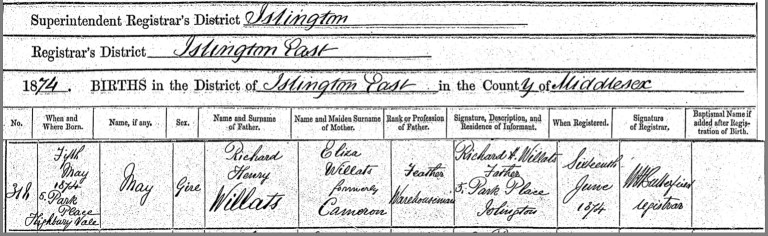 Superintendent Registrar's District Islington
Registrar's District Islington East
1874. BIRTHS in the District of Islington East in the County of Middlesex
No.
When and
Where Born.
Name, if any.
Sex.
Name and Surname
of Father.
Name and Maiden Surname
of Mother.
Rank or Profession
of Father.
Signature, Description, and
Residence of Informant.
When Registered.
Signature
of Registrar.
Baptismal Name if
added after Regis-
tration of Birth.
Fifth
May
1874
5, Park
Place
Highbury Vale
May
Richard
Henry
Willats
Eliza
Willats
formerly
Cameron
Feather
Warehouseman
Richard H. Willats
Father
5, Park Place
Islington
Sixteenth
June
1874
registrar